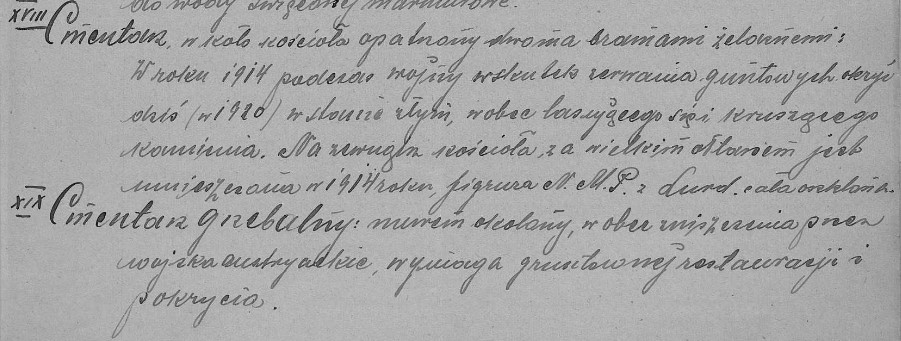 do wody święconej marmurowe.
XVIII Cmentarz, w koło kościoła opatrzony dwoma bramami żelaznemi:
W roku 1914 podczas wojny wskutek zerwania guntowych okryć
dziś (w 1920) w stanie złym, wobec lasującego się i kruszącego
kamienia. Na zewnątrz kościoła, za wielkim ołtarzem jest
umieszczona w 1914 roku, figura N. M. P. z Lurd. cała oszklona.
XIX Cmentarz grzebalny: murem okolony, wobec zniszczenia przez
wojska austryackie, wymaga gruntownej restauracji i
pokrycia.